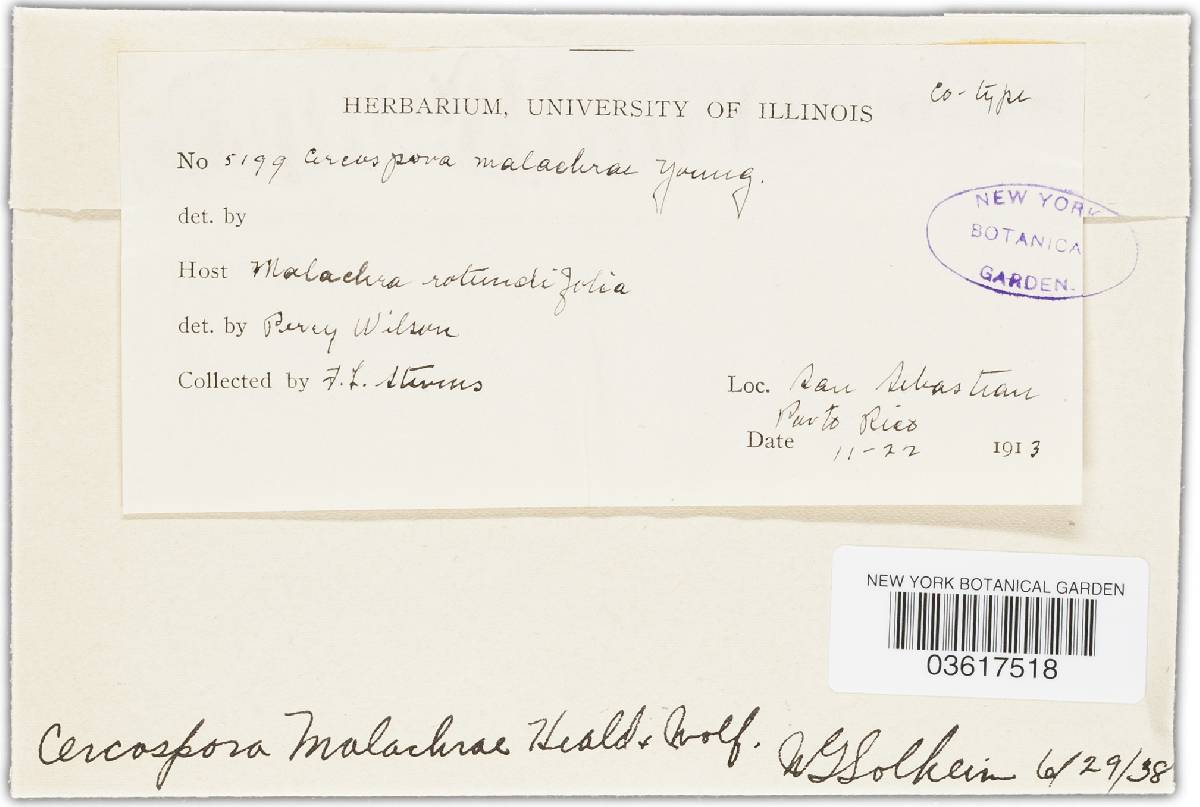 Co-type
HERBARIUM, UNIVERSITY OF ILLINOIS
No 5199 Cercospora malachrae Young.
det. by
Host Malachra rotundifolia
det. by Percy Wilson
Collected by F.L. Stevens
Loc. San Sebastian
Porto Rico
Date 11-22 1913
NEW YORK
BOTANICA
GARDEN.
NEW YORK BOTANICAL GARDEN
03617518
Cercospora Malachrae Heald & Wolf.
WGSolheim 6/29/38